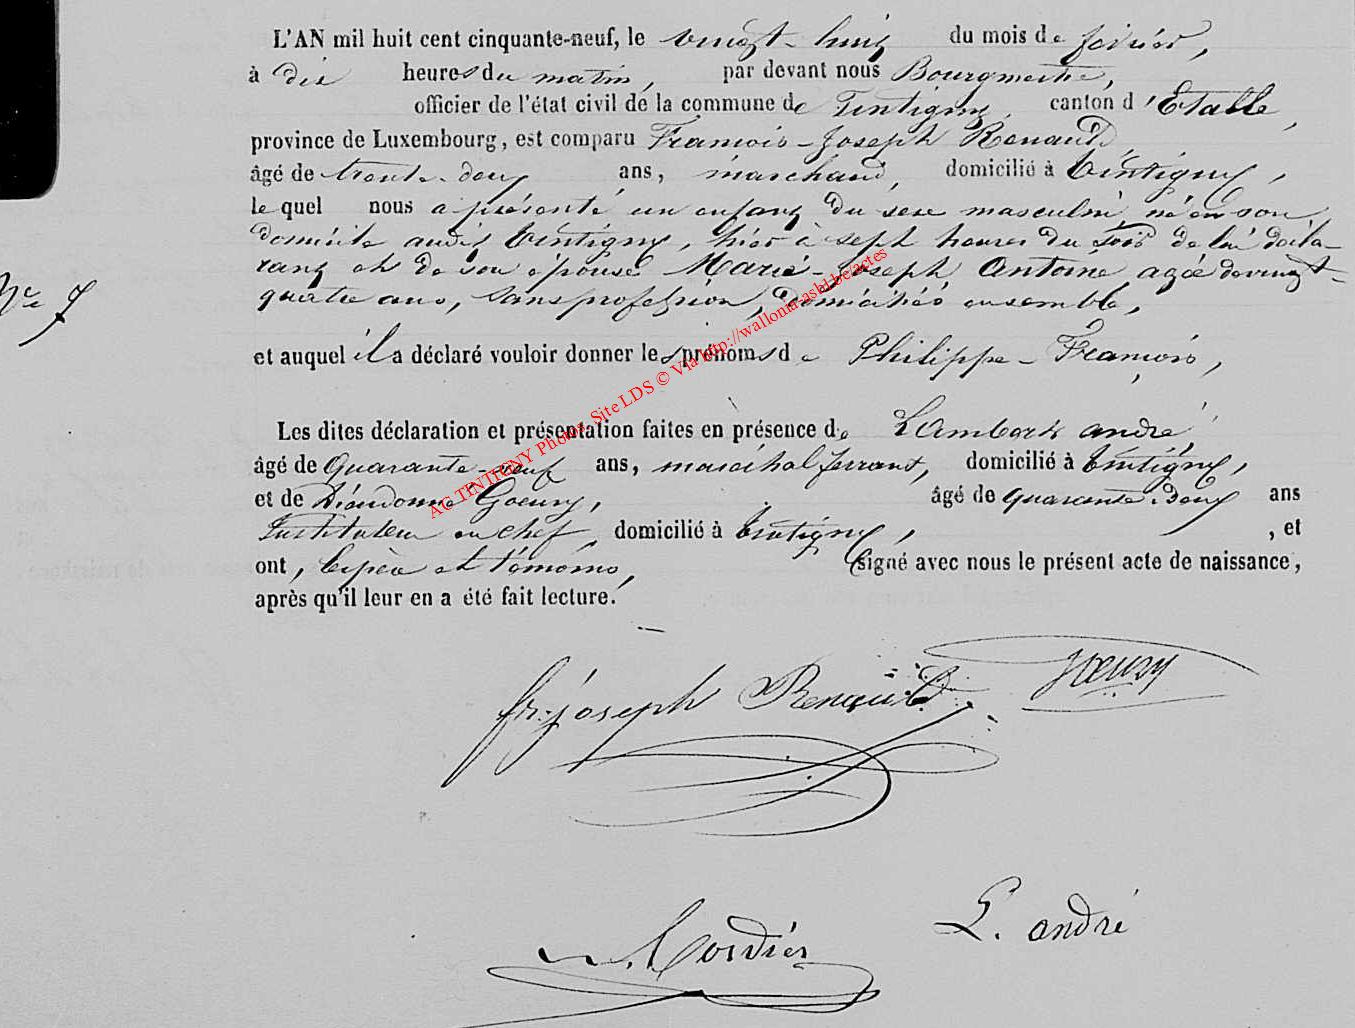 L'AN mil huit cent cinquante-neuf, le vingt-huit du mois de février,
à dix heures du matin, par devant nous Bourgmestre,
officier de l'état civil de la commune de Tintigny canton d'Etalle,
province de Luxembourg, est comparu François-Joseph Renauld
âgé de trente-deux ans, marchand, domicilié à tintigny,
le quel nous a présenté un enfant du sexe masculin, né en son
domicile audit tintigny, hier à sept heures du soir de lui décla-
rant et de son épouse Marie-Joseph Antoine agée de vingt-
quatre ans, sans profession, domiciliés ensemble,
N° 7
et auquel il a déclaré vouloir donner les prénoms de Philippe-François,
Les dites déclaration et présentation faites en présence de Lambert andré,
âgé de Quarante-neuf ans, maréchal ferrant, domicilié à tintigny,
et de Dieudonné Goeury, âgé de quarante deux ans
Instituteur en chef, domicilié à tintigny, , et
ont, le père et témoins, signé avec nous le présent acte de naissance,
après qu'il leur en a été fait lecture.
fr. joseph Renauld Goeury
L. andré
Cordier
AC TINTIGNY Photos, Site LDS © Via http://wallonia-asbl.be/actes